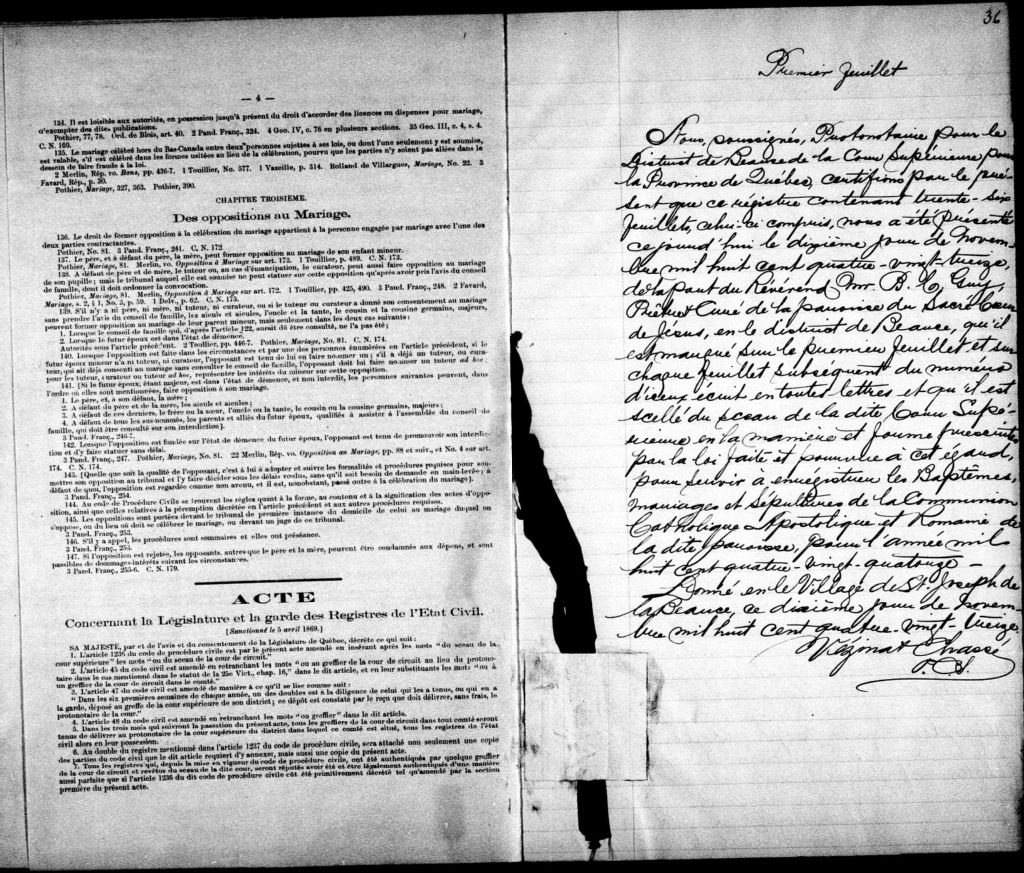 — 4 —
134. Il est loisible aux autorités, en possession jusqu'à présent du droit d'accorder des licences ou dispenses pour mariage,
d'exempter des dites publications.
Pothier, 77, 78. Ord. de Blois, art. 40. 2 Pand. Franç., 324. 4 Geo. IV, c. 76 en plusieurs sections. 35 Geo. III, c. 4, s. 4.
C. N. 169.
135. Le mariage célébré hors du Bas-Canada entre deux personnes sujettes à ses lois, ou dont l'une seulement y est soumise,
est valable, s'il est célébré dans les formes usitées au lieu de la célébration, pourvu que les parties n'y soient pas allées dans le
dessein de faire fraude à la loi.
2 Merlin, Rép. vo. Bans, pp. 436-7. 1 Touillier, No. 577. 1 Vazeille, p. 314. Rolland de Villargues, Mariage, No. 22. 3
Favard, Rép., p. 30.
Pothier, Mariage, 327, 363. Pothier, 390.
CHAPITRE TROISIÈME.
Des oppositions au Mariage.
136. Le droit de former opposition à la célébration du mariage appartient à la personne engagée par mariage avec l'une des
deux parties contractantes.
Pothier, No. 81. 3 Pand. Franç., 241. C. N. 172
137. Le père, et à défaut du père, la mère, peut former opposition au mariage de son enfant mineur.
Pothier, Mariage, 81. Merlin, vo. Opposition à Mariage sur art. 173. 1 Touillier, p. 489. C. N. 173.
138. A défaut de père et de mère, le tuteur ou, au cas d'émancipation, le curateur, peut aussi faire opposition au mariage
de son pupille; mais le tribunal auquel elle est soumise ne peut statuer sur cette opposition qu'après avoir pris l'avis du conseil
de famille, dont il doit ordonner la convocation.
Pothier, Mariage, 81. Merlin, Opposition à Mariage sur art. 172. 1 Touillier, pp. 425, 490. 3 Pand. Franç., 248. 2 Favard,
Mariage, s. 2, § 1, No. 3, p. 59. 1 Delv., p. 62. C. N. 175.
139. S'il n'y a ni père, ni mère, ni tuteur, ni curateur, ou si le tuteur ou curateur a donné son consentement au mariage
sans prendre l'avis du conseil de famille, les aïeuls et aïeules, l'oncle et la tante, le cousin et la cousine germains, majeurs,
peuvent former opposition au mariage de leur parent mineur, mais seulement dans les deux cas suivants:
1. Lorsque le conseil de famille qui, d'après l'article 122, aurait dû être consulté, ne l'a pas été;
2. Lorsque le futur époux est dans l'état de démence.
Autorités sous l'article précé'ent. 2 Touillier, pp. 446-7. Pothier, Mariage, No. 81. C. N. 174.
140. Lorsque l'opposition est faite dans les circonstances et par une des personnes énumérées en l'article précédent, si le
futur époux mineur n'a ni tuteur, ni curateur, l'opposant est tenu de lui en faire nommer un; s'il a déjà un tuteur, ou cura-
teur, qui ait déjà consenti au mariage sans consulter le conseil de famille, l'opposant doit lui faire nommer un tuteur ad hoc,
pour les tuteur, curateur ou tuteur ad hoc, représenter les intérêts du mineur sur cette opposition.
141. [Si le futur époux, étant majeur, est dans l'état de démence, et non interdit, les personnes suivantes peuvent, dans
l'ordre où elles sont mentionnées, faire opposition à son mariage.
1. Le père, et, à son défaut, la mère;
2. A défaut du père et de la mère, les aïeuls et aïeules;
3. A défaut de ces derniers, le frère ou la sœur, l'oncle ou la tante, le cousin ou la cousine germains, majeurs;
4. A défaut de tous les sus-nommés, les parents et alliés du futur époux, qualifiés à assister à l'assemblée du conseil de
famille, qui doit être consulté sur son interdiction].
3 Pand. Franç., 246-7.
142. Lorsque l'opposition est fondée sur l'état de démence du futur époux, l'opposant est tenu de promouvoir son interdic-
tion et d'y faire statuer sans délai.
3 Pand. Franç., 247. Pothier, Mariage, No. 81. 22 Merlin, Rép. vo. Opposition au Mariage, pp. 88 et suiv., et No. 4 sur art.
174. C. N. 174.
143. [Quelle que soit la qualité de l'opposant, c'est à lui à adopter et suivre les formalités et procédures requises pour sou-
mettre son opposition au tribunal et l'y faire décider sous les délais voulus, sans qu'il soit besoin de demande en main-levée; à
défaut de quoi, l'opposition est regardée comme non avenu, et il est, nonobstant, passé outre à la célébration du mariage].
3 Pand. Franç., 254.
144. Au code de Procédure Civile se trouvent les règles quant à la forme, au contenu et à la signification des actes d'oppo-
sition, ainsi que celles relatives à la péremption décrétée en l'article précédent et aux autres procédures requises.
145. Les oppositions sont portées devant le tribunal de première instance du domicile de celui au mariage duquel on
s'oppose, ou du lieu où doit se célébrer le mariage, ou devant un juge de ce tribunal.
3 Pand. Franç., 253.
146. S'il y a appel, les procédures sont sommaires et elles ont préséance.
3 Pand. Franç., 253.
147. Si l'opposition est rejetée, les opposants, autres que le père et la mère, peuvent être condamnés aux dépens, et sont
passibles de dommages-intérêts suivant les circonstances.
3 Pand. Franç., 255-6. C. N. 179.
ACTE
Concernant la Législature et la garde des Registres de l'Etat Civil.
[Sanctionné le 5 avril 1869.]
SA MAJESTÉ, par et de l'avis et du consentement de la Législature de Québec, décrète ce qui suit:
1. L'article 1236 du code de procédure civile est par le présent acte amendé en insérant après les mots "du sceau de la
cour supérieure" les mots "ou du sceau de la cour de circuit."
2. L'article 45 du code civil est amendé en retranchant les mots "ou au greffier de la cour de circuit au lieu du protono-
taire dans le cas mentionné dans le statut de la 25e Vict., chap. 16," dans le dit article, et en leur substituant les mots "ou à
un greffier de la cour de circuit dans le comté."
3. L'article 47 du code civil est amendé de manière à ce qu'il se lise comme suit:
"Dans les six premières semaines de chaque année, un des doubles est à la diligence de celui qui les a tenus, ou qui en a
la garde, déposé au greffe de la cour supérieure de son district; ce dépôt est constaté par le reçu que doit délivrer, sans frais, le
protonotaire de la cour."
4. L'article 48 du code civil est amendé en retranchant les mots "ou greffier" dans le dit article.
5. Dans les trois mois qui suivront la passation du présent acte, tous les greffiers de la cour de circuit dans tout comté seront
tenus de délivrer au protonotaire de la cour supérieure du district dans lequel ce comté est situé, tous les registres de l'état
civil alors en leur possession.
6. Au double du registre mentionné dans l'article 1237 du code de procédure civile, sera attaché non seulement une copie
des parties du code civil que le dit article requiert d'y annexer, mais aussi une copie du présent acte.
7. Tous les registres qui, depuis la mise en vigueur du code de procédure civile, ont été authentiqués par quelque greffier
de la cour de circuit et revêtus du sceau de la dite cour, seront réputés avoir été et être légalement authentiqués d'une manière
aussi parfaite que si l'article 1236 du dit code de procédure civile eût été primitivement décrété tel qu'amendé par la section
première du présent acte.
36
Premier feuillet
Nous, soussignés, Protonotaire pour le
District de Beauce de la Cour Supérieure pour
la Province de Québec, certifions par le pré-
sent que ce registre contenant trente-six
feuillets, celui-ci compris, nous a été présenté
ce jourd'hui le dixième jour de Novem-
bre mil huit cent quatre-vingt-treize,
de la part du Révérend Mr. B. C. Guy,
Prêtre Curé de la paroisse du Sacré Cœur
de Jésus, en le district de Beauce, qu'il
est marqué sur le premier feuillet et sur
chaque feuillet subséquent du numéro
d'iceux écrit en toutes lettres et qu'il est
scellé du sceau de la dite Cour Supé-
rieure en la manière et forme prescrite
par la loi faite et pourvue à cet égard,
pour servir à enrégistrer les Baptêmes,
mariages et sépultures de la Communion
Catholique Apostolique et Romaine de
la dite paroisse, pour l'année mil
huit cent quatre-vingt-quatorze -
Donné en le Village de St. Joseph de
la Beauce, ce dixième jour de Novem-
bre mil huit cent quatre-vingt-treize
Vézina & Chassé
P. S.